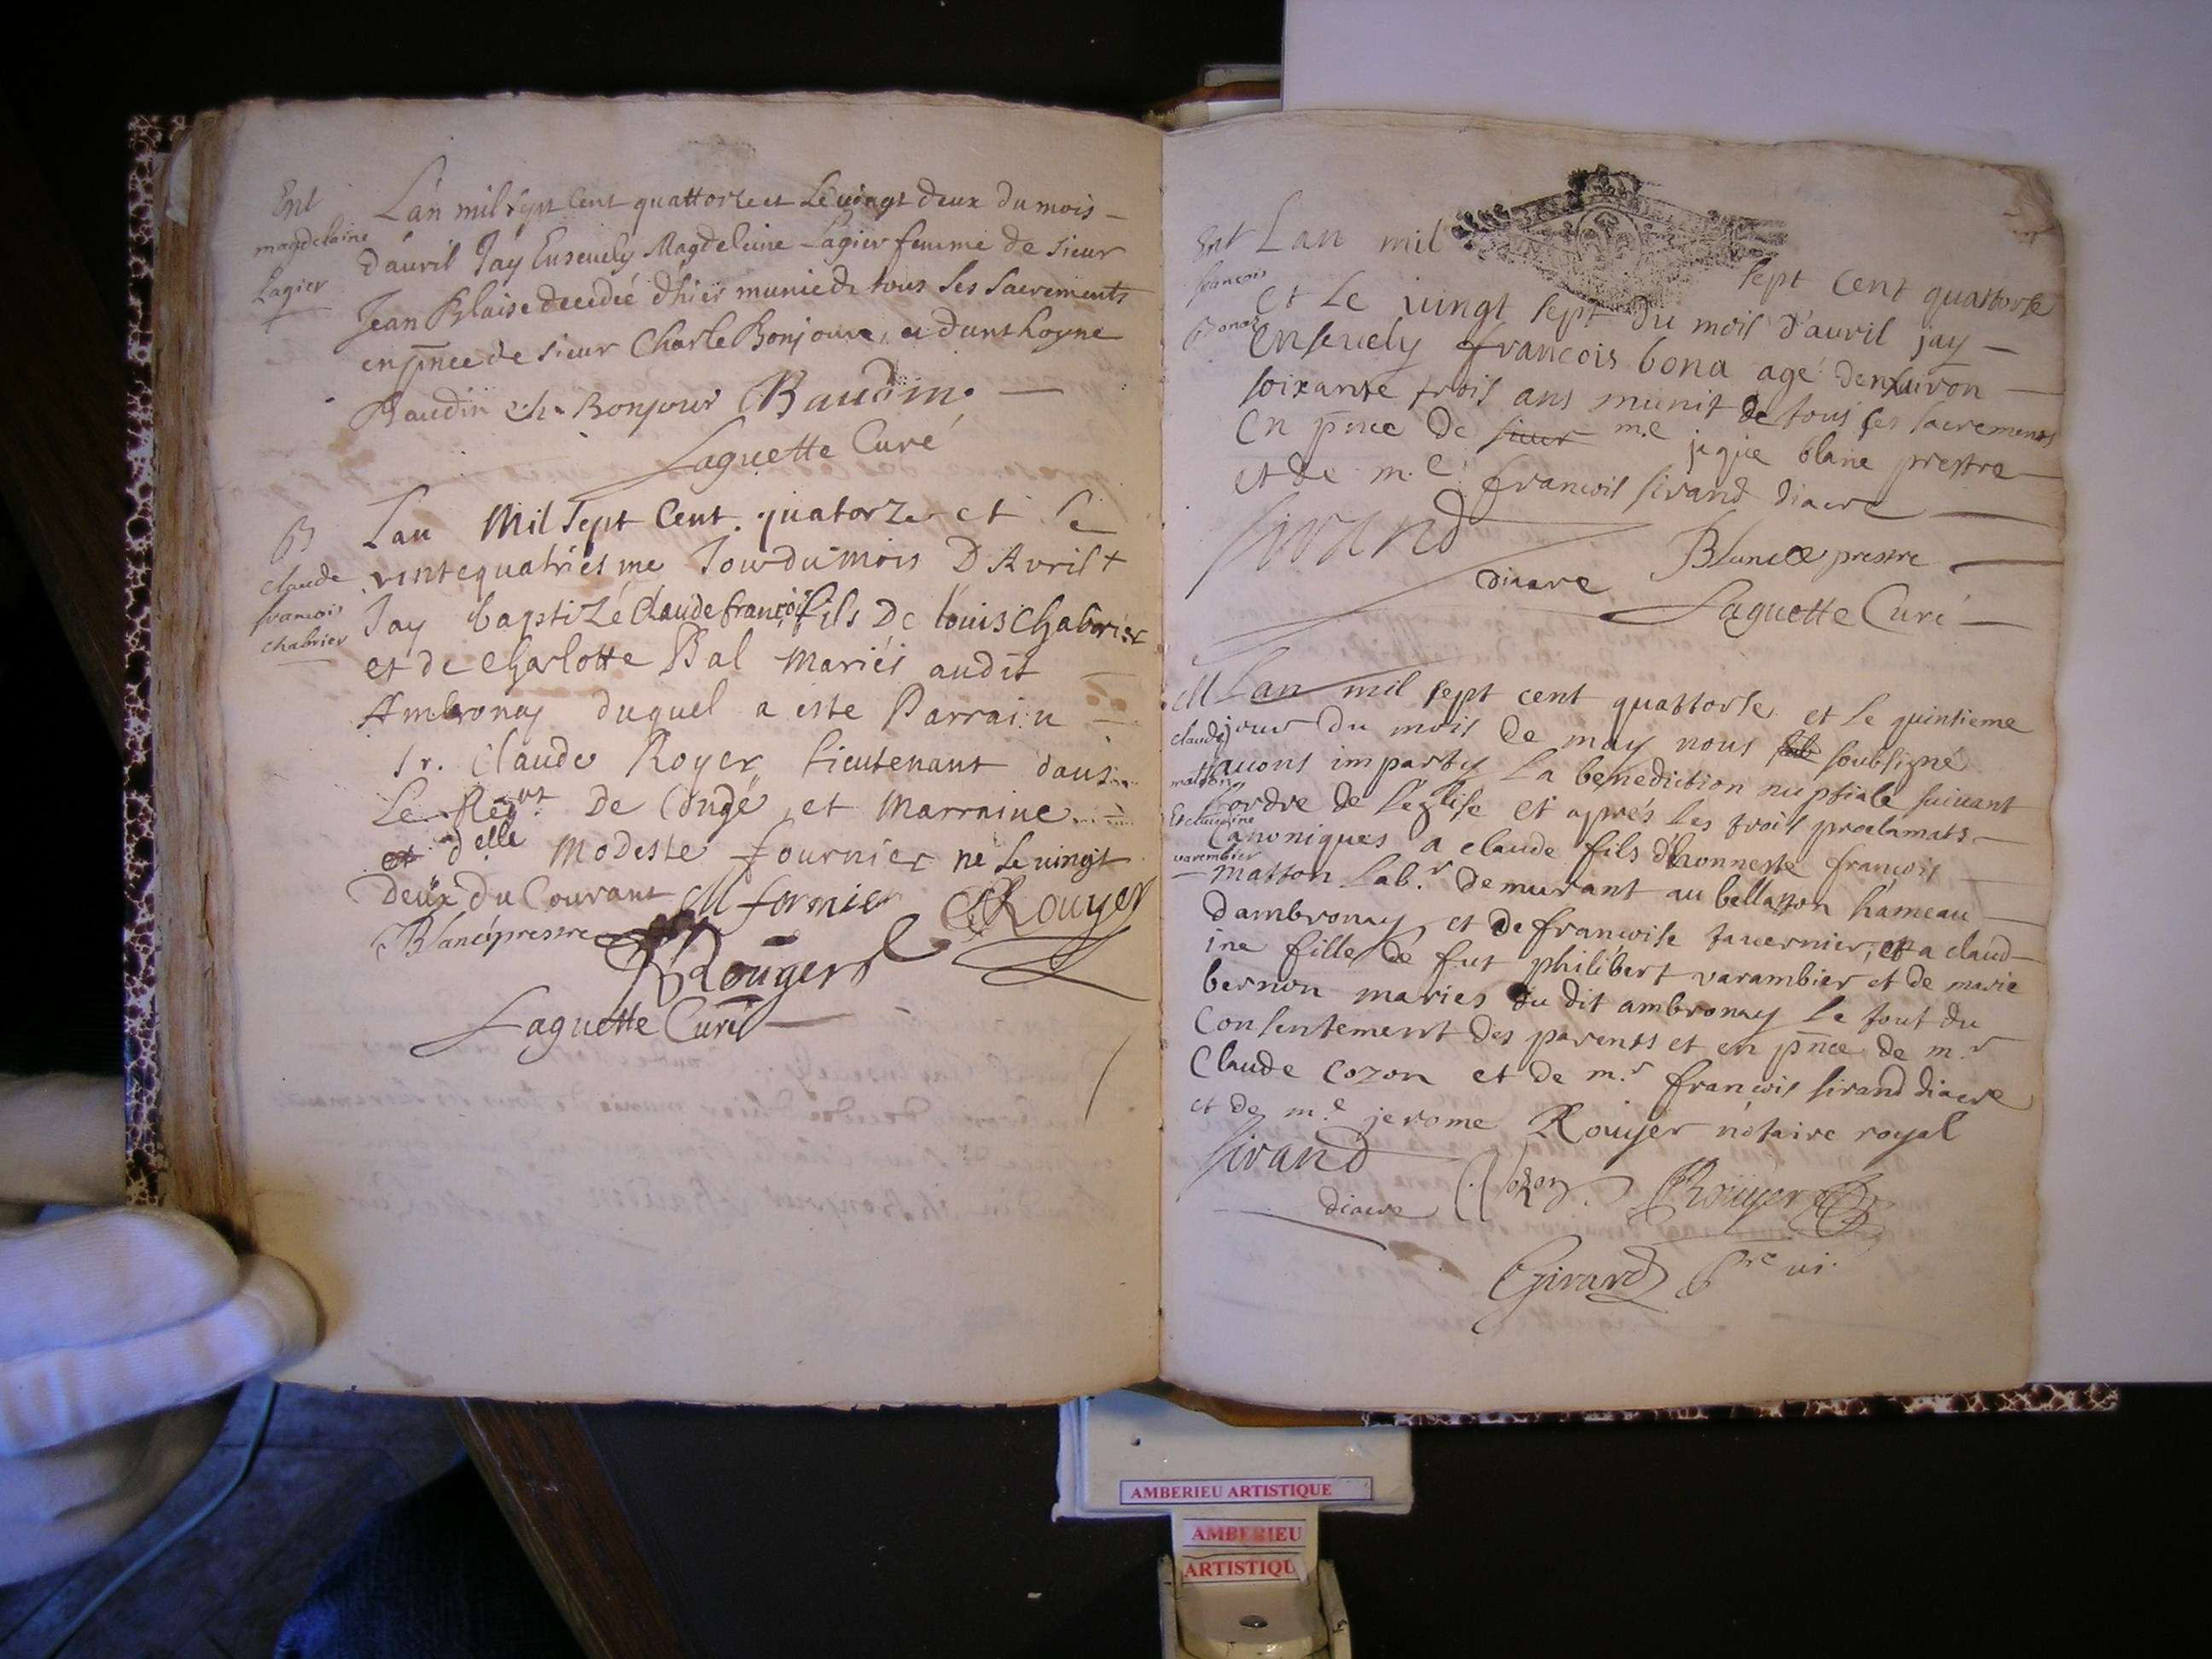 Ent
magdelaine
Lagier
L'an mil sept cent quattorze et Le vingt deux du mois -
d'auril Jay Enseuely Magdeleine Lagier femme de sieur
Jean Blaise decedée d'hier munie de tous ses sacrements
en pnce de sieur Charle Bonjour, et d'anthoyne
Baudin ch. Bonjour Baudin.
Laguette Curé
B
claude
francois
chabrier
Lan Mil Sept Cent quatorze et le
vintequatriesme Jour du mois D'Avril +
Jay baptizé Claude françois fils De louis Chabrier
et de Charlotte Bal Mariés audit
Ambronay duquel a esté Parrain
Sr. Claude Royer Lieutenant dans
Le Regnt De Condé, et Marraine
et delle Modeste fournier né le uingt
Deux du Courant M fornier Rouyer
Blanc prestre
Rouyer
Laguette Curé
Ent
francois
Bona
Lan mil
sept cent quattorse
et le vingt sept du mois d'auril jay -
enseuely francois bona agé denuiron
soixante trois ans munit de tous ses sacrements
en pnce de sieur me blanc prestre
et de m.e francois sirand diacre
Sirand
diacre
Blanc prestre
Laguette Curé
M
claude
matton
Et claudine
varembier
Lan mil sept cent quattorse et le quinsieme
jour du mois de may nous sub soubsigné
auons imparty la benediction nuptiale suiuant
l'ordre de l'eglise et aprés les trois proclamats
Canoniques a claude fils d'honneste francois
matton lab.r demurant au bellaton hameau
dambronay et de francoise tauernier, et a claud-
ine fille de fut philibert varambier et de marie
bernon maries du dit ambronay le tout du
consentement des parents et en pnce de m.r
Claude cozon et de m.r francois sirand diacre
et de m.e jerome Rouyer notaire royal
Sirand
diacre
C Cozon
Rouyer
Girard pre vi.
AMBERIEU ARTISTIQUE
AMBERIEU
ARTISTIQU